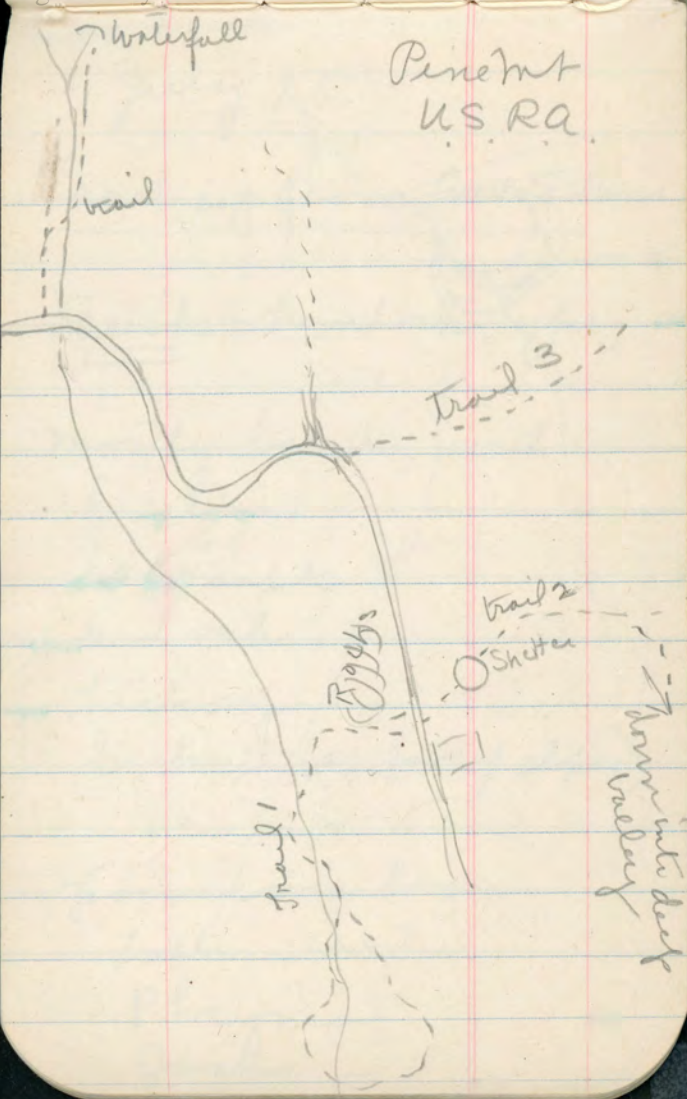 Waterfall
Pine Mt
U.S.R.A.
trail
trail 3
trail 2
Shelter
trail 1
down into deep
valley